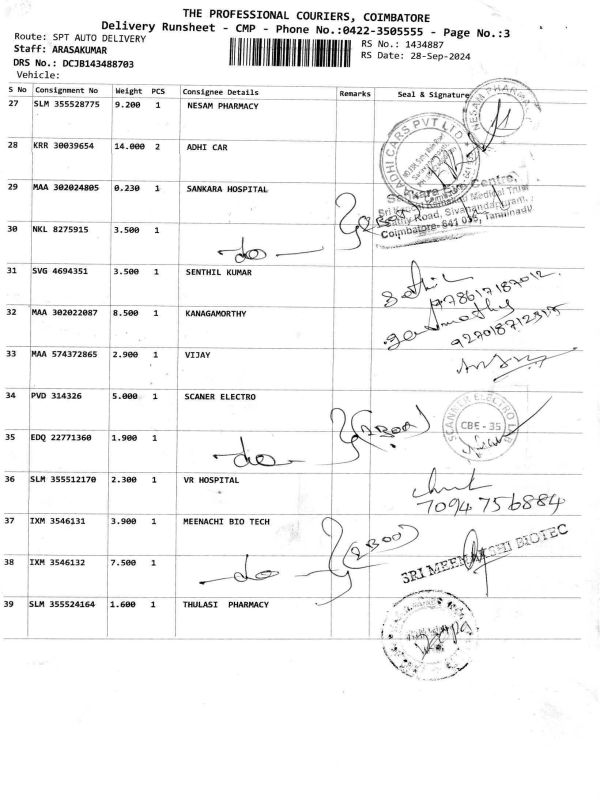 THE PROFESSIONAL COURIERS, COIMBATORE
Delivery Runsheet - CMP - Phone No.:0422-3505555 - Page No.:3
Route: SPT AUTO DELIVERY
RS No.: 1434887
Staff: ARASAKUMAR
RS Date: 28-Sep-2024
DRS No.: DCJB143488703
Vehicle:
S No Consignment No Weight PCS Consignee Details Remarks Seal & Signature
27 SLM 355528775 9.200 1 NESAM PHARMACY
NESAM PHARMA
28 KRR 30039654 14.000 2 ADHI CAR
ADHI CARS PVT LTD
29 MAA 302024805 0.230 1 SANKARA HOSPITAL
Eye Centre,
Medical Trust
Road, Sivanandapuram,
Coimbatore-641 035, Tamilnadu
30 NKL 8275915 3.500 1
-do-
31 SVG 4694351 3.500 1 SENTHIL KUMAR
32 MAA 302022087 8.500 1 KANAGAMORTHY
33 MAA 574372865 2.900 1 VIJAY
34 PVD 314326 5.000 1 SCANER ELECTRO
SCANNER ELECTRO LAB
CBE - 35
35 EDQ 22771360 1.900 1
-do-
36 SLM 355512170 2.300 1 VR HOSPITAL
7094 756884
37 IXM 3546131 3.900 1 MEENACHI BIO TECH
SRI MEENAKSHI BIOTEC
38 IXM 3546132 7.500 1
-do-
39 SLM 355524164 1.600 1 THULASI PHARMACY